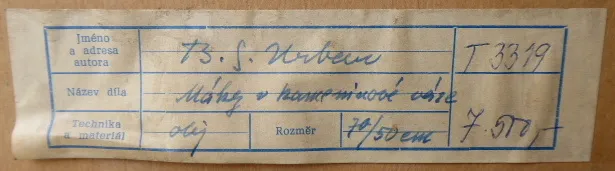 Jméno a adresa autora B. S. Urban T 3319
Název díla Máky v kameninové váze
Technika a materiál olej Rozměr 70/50 cm 7.500,-